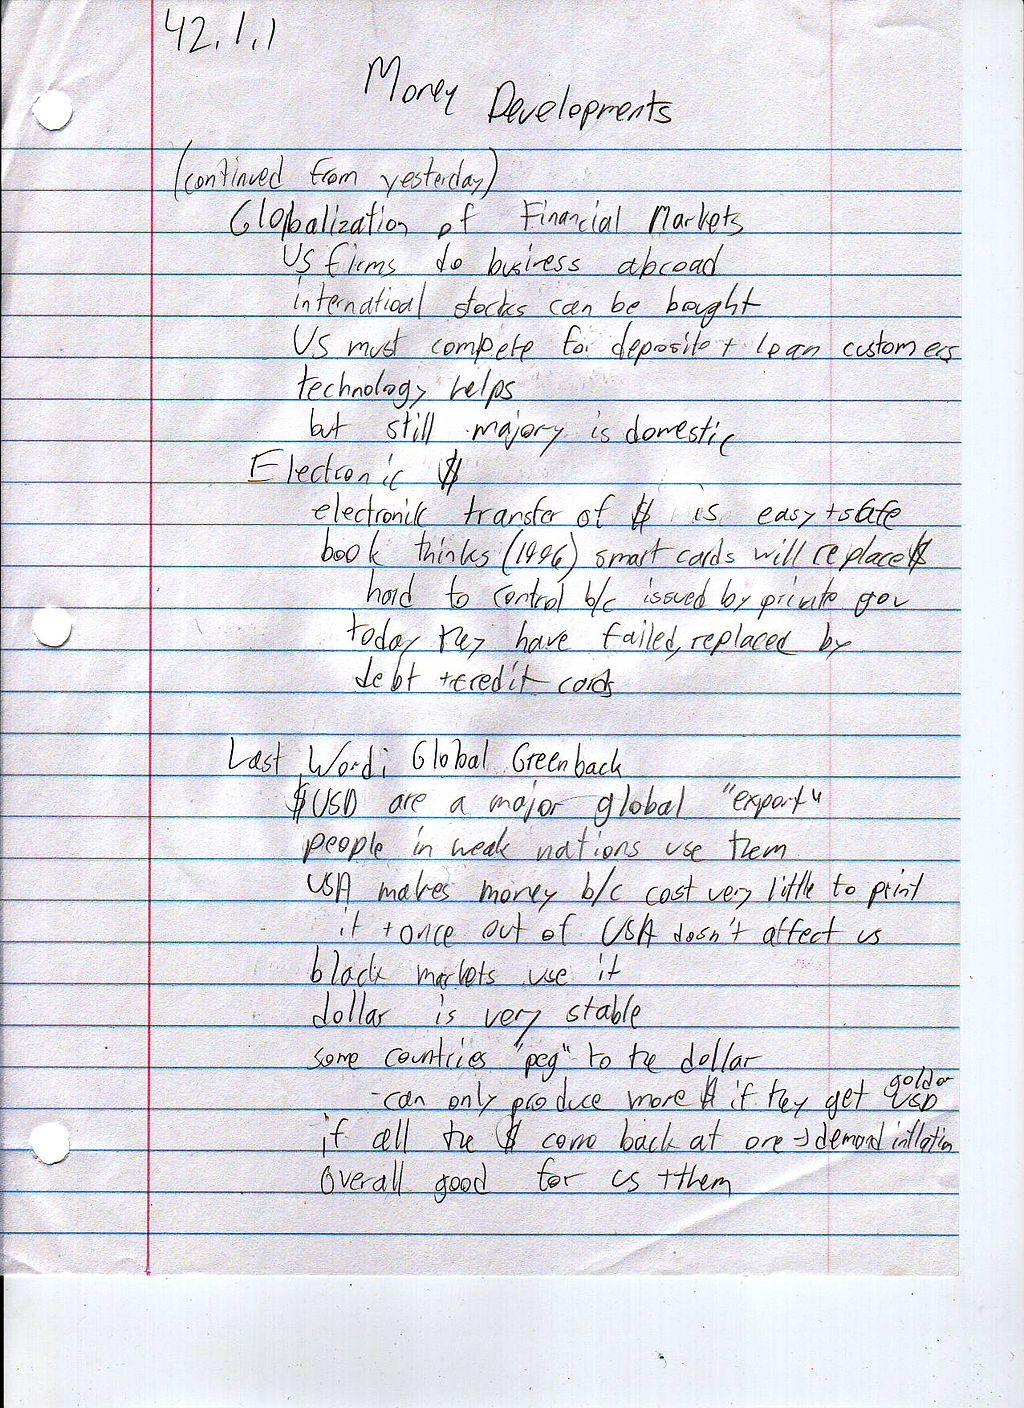 42.1.1
Money Developments
(continued from yesterday)
Globalization of Financial Markets
US firms do business abroad
internatioal stocks can be bought
US must compete for deposite + loan customers
technology helps
but still majory is domestic
Electronic $
electronic transfer of $ is easy + safe
book thinks (1996) smart cards will replace $
hard to control b/c issued by private gov
today they have failed, replaced by
debt + credit cards
Last Word: Global Greenback
$USD are a major global "export"
people in weak nations use them
USA makes money b/c cost very little to print
it + once out of USA dosn't affect us
black markets use it
dollar is very stable
some countries "peg" to the dollar
-can only produce more $ if they get gold or USD
if all the $ come back at one → demand inflation
overall good for us + them